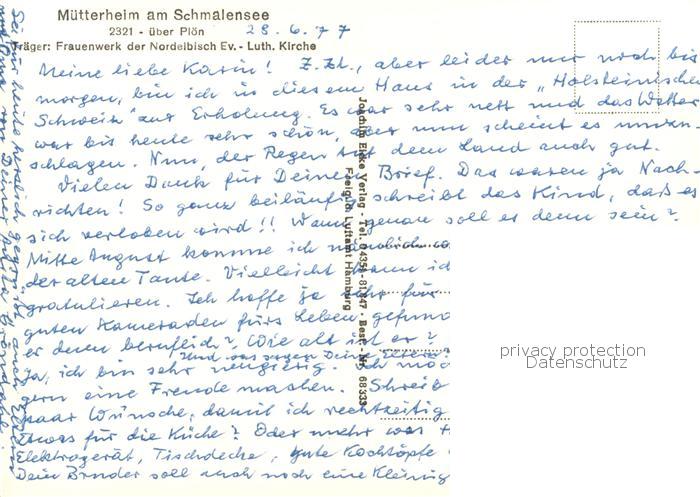 Mütterheim am Schmalensee
2321 - über Plön 28.6.77
Träger: Frauenwerk der Nordelbisch Ev.- Luth. Kirche
Meine liebe Karin! Z.Zt., aber leider nur noch bis
morgen, bin ich in diesem Haus in der „Holsteinischen
Schweiz" zur Erholung. Es war sehr nett und das Wetter
war bis heute sehr schön, aber nun scheint es umzu-
schlagen. Nun, der Regen tut dem Land auch gut.
Vielen Dank für Deinen Brief. Das waren ja Nach-
richten! So ganz beiläufig schreibt das Kind, daß es
sich verloben wird!! Wann genau soll es denn sein?
Mitte August komme ich nämlich
der alten Tante. Vielleicht kann ich
gratulieren. Ich hoffe ja sehr für
guten Kameraden fürs Leben gefund
er denn beruflich? Wie alt ist er?
Und was sagen Deine Eltern?
Ja, ich bin sehr neugierig. Ich möc
gern eine Freude machen. Schreib
paar Wünsche, damit ich rechtzeitig
Etwas für die Küche? Oder mehr was
Elektrogerät, Tischdecke, gute Kochtöpfe
Dein Bruder soll auch noch eine Kleinig
Sei für heute herzlich gegrüßt
von Deiner
Joachim Eicke Verlag - Tel. 04354-81847 - Best. Nr. 68333
Freig. d. Luftamt Hamburg
privacy protection
Datenschutz